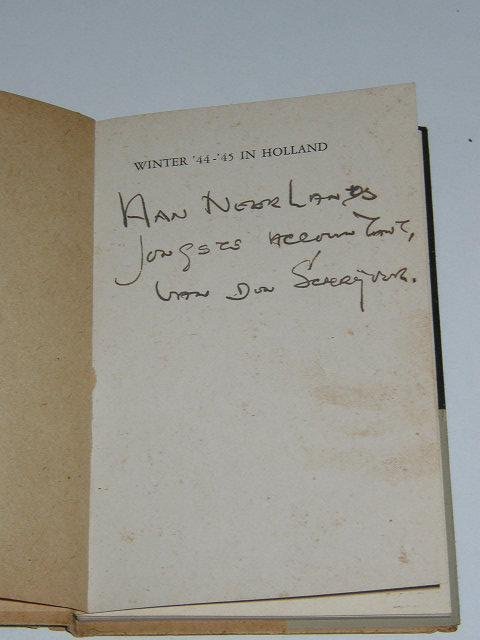 WINTER '44-'45 IN HOLLAND
Aan Neerlands
jongste accountant,
van den Schrijver.